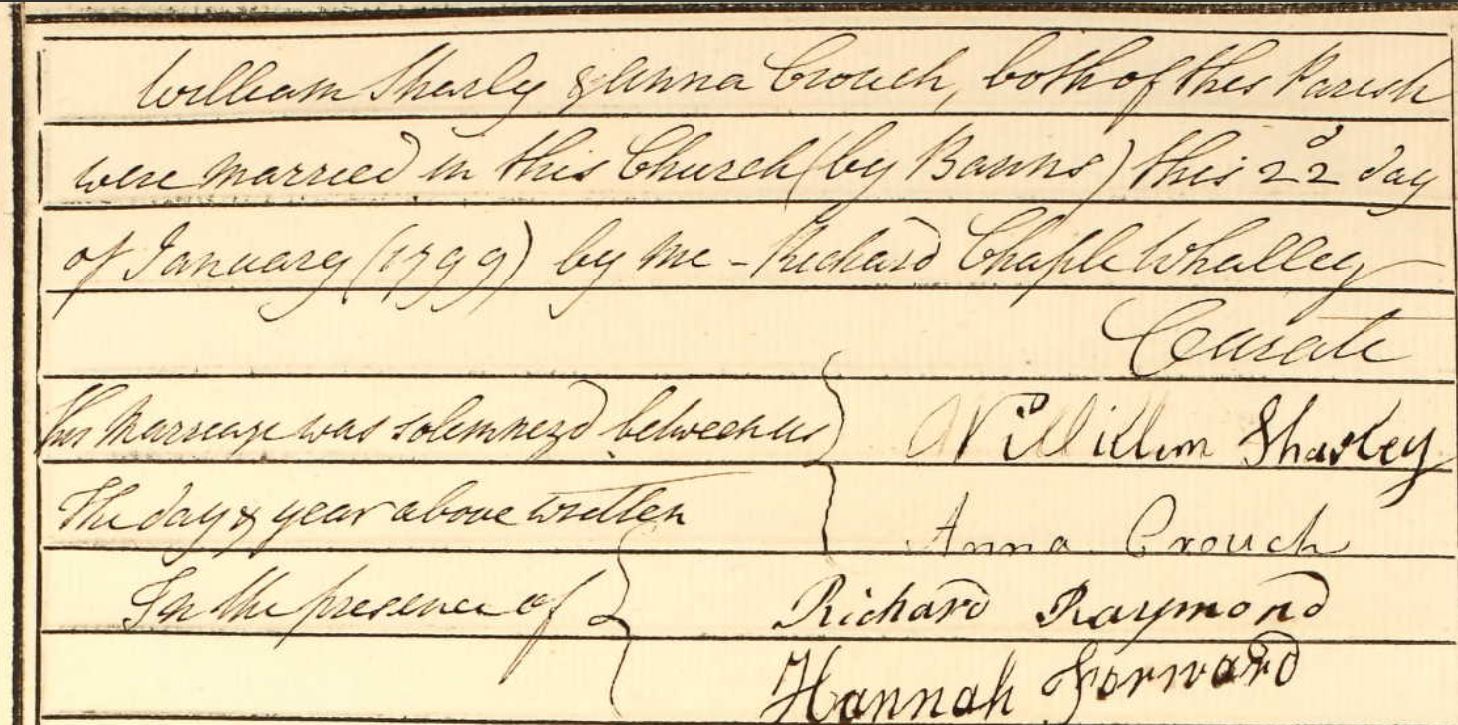 William Sharly & Anna Crouch, both of this Parish
were married in this Church (by Banns) this 22d day
of January (1799) by me - Richard Chaple Whalley
Curate
This Marriage was solemnezd between us } Willillim Sharley
The day & year above written } Anna Crouch
In the presence of { Richard Raymond
Hannah Forward